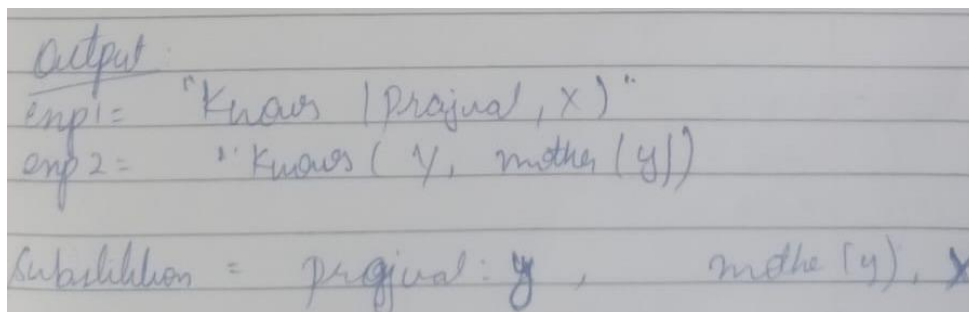 Output
exp1= "Knows (prajwal, X)"
exp2= "Knows( Y, mother (y))
Substitution = prajwal : y , mothe (y), X